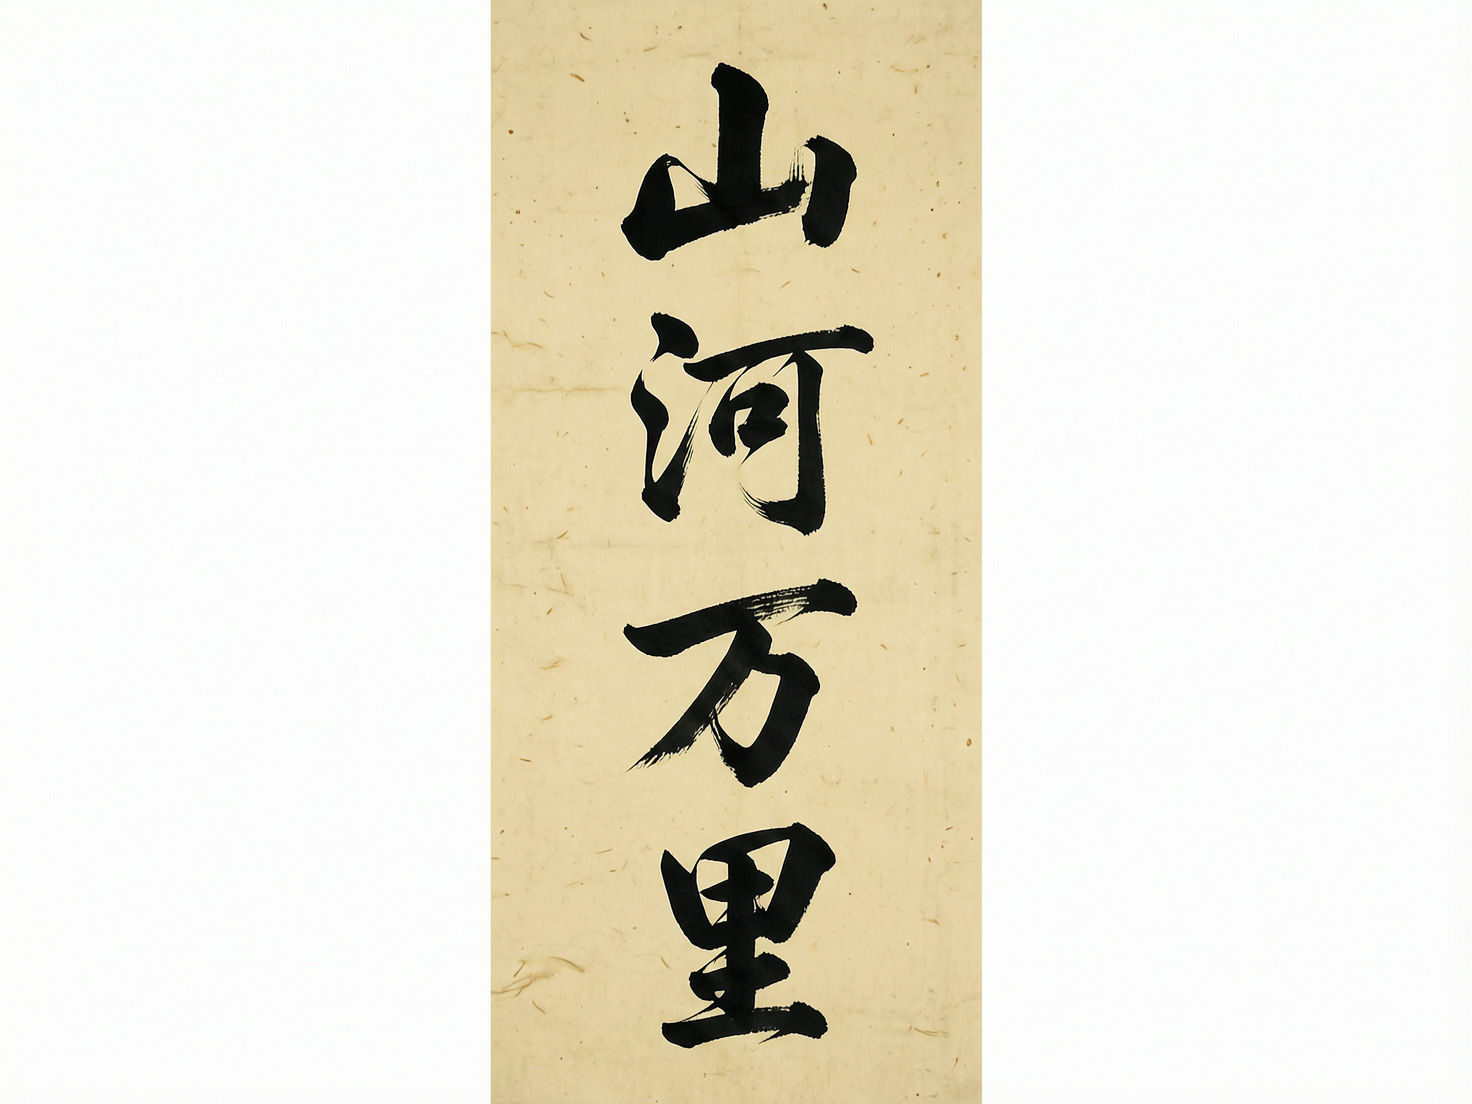 山河万里